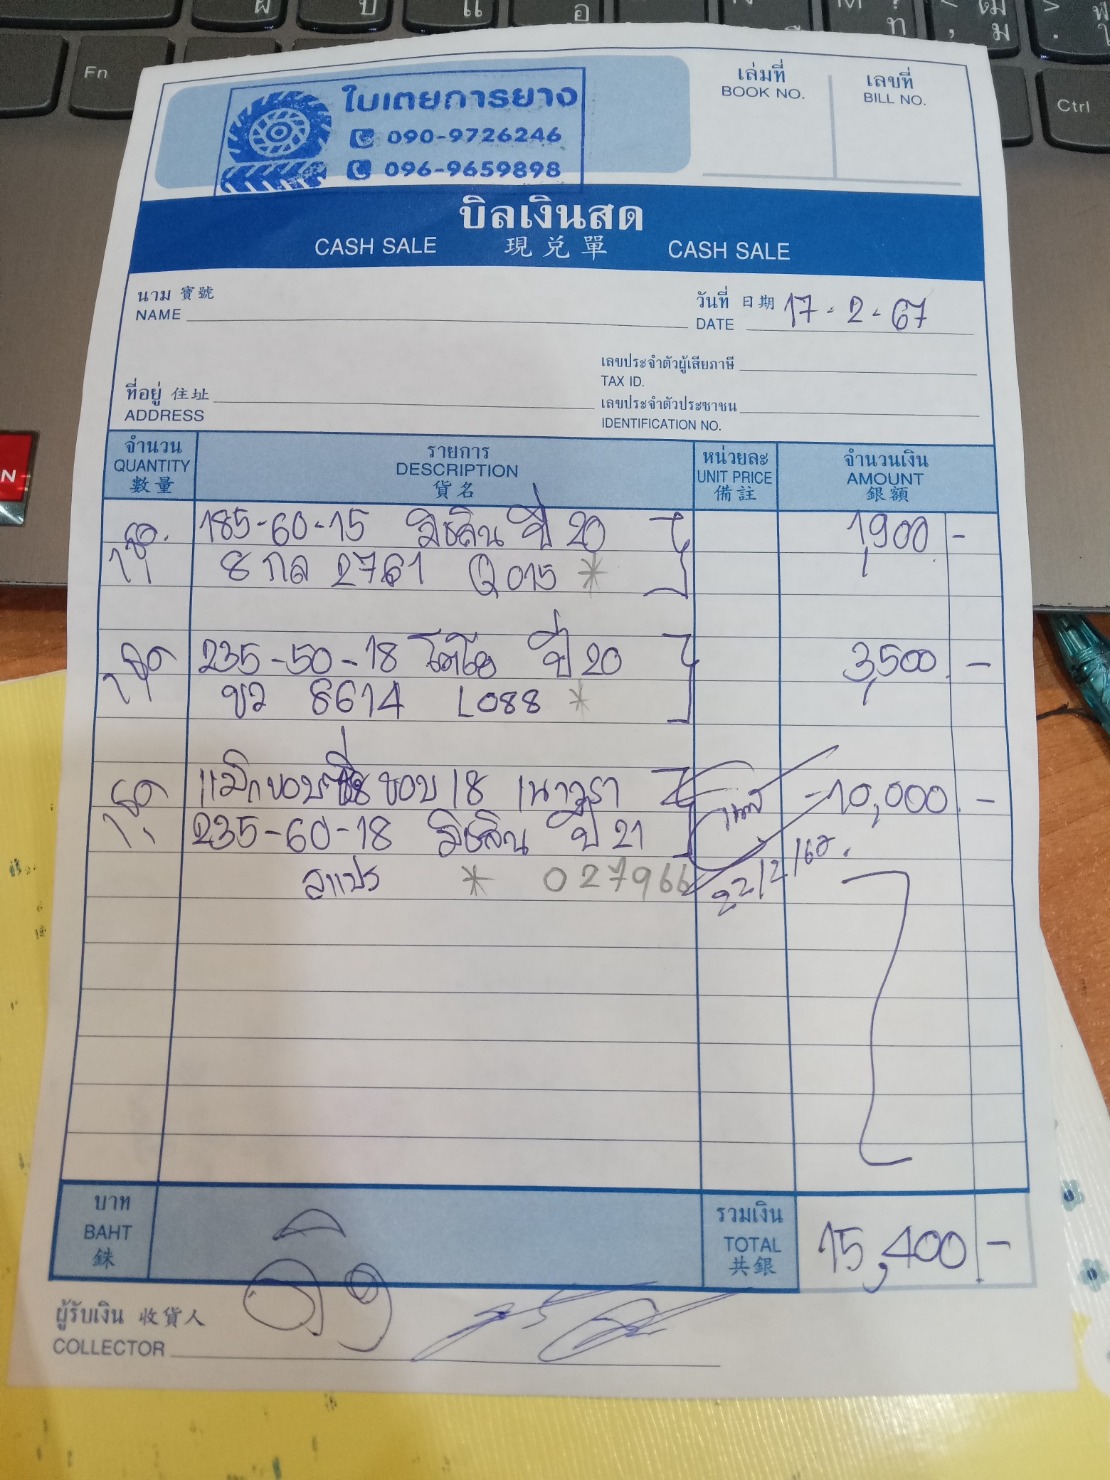 ใบเตยการยาง
090-9726246
096-9659898
เล่มที่
BOOK NO.
เลขที่
BILL NO.
บิลเงินสด
CASH SALE 現兌單 CASH SALE
นาม 寶號
NAME
วันที่ 日期 17-2-67
DATE
เลขประจำตัวผู้เสียภาษี
TAX ID.
ที่อยู่ 住址
ADDRESS
เลขประจำตัวประชาชน
IDENTIFICATION NO.
จำนวน
QUANTITY
數量
รายการ
DESCRIPTION
貨名
หน่วยละ
UNIT PRICE
備註
จำนวนเงิน
AMOUNT
銀額
185-60-15 มิชลิน ปี 20 1,900 -
8 กล 2761 Q015 *
235-50-18 โตโย ปี 20 3,500 -
ขว 8614 L088 *
ขอบ 18 นาวรา 10,000 -
235-60-18 มิชลิน ปี 21
* 027966
22/2/68.
บาท
BAHT
銖
รวมเงิน
TOTAL
共銀
15,400 -
ผู้รับเงิน 收貨人
COLLECTOR
Fn
Ctrl